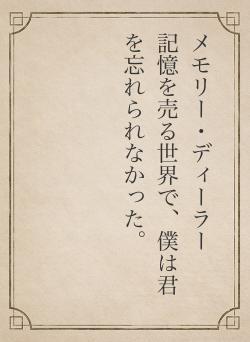 メモリー・ディーラー
記憶を売る世界で、僕は君
を忘れられなかった。